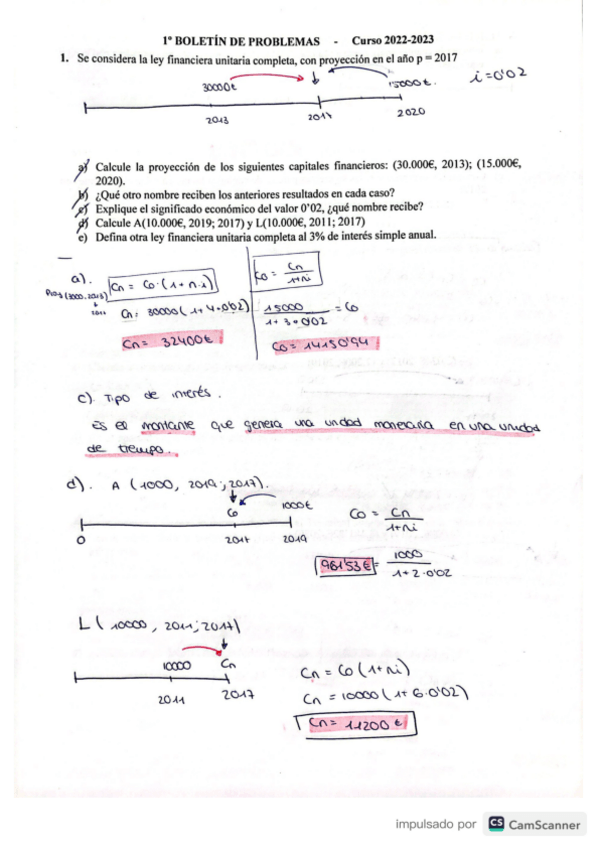 1º BOLETÍN DE PROBLEMAS - Curso 2022-2023
1. Se considera la ley financiera unitaria completa, con proyección en el año p = 2017
i=0'02
30000€ 15000€.
2013 2017 2020
a) Calcule la proyección de los siguientes capitales financieros: (30.000€, 2013); (15.000€,
2020).
b) ¿Qué otro nombre reciben los anteriores resultados en cada caso?
c) Explique el significado económico del valor 0'02, ¿qué nombre recibe?
d) Calcule A(10.000€, 2019; 2017) y L(10.000€, 2011; 2017)
e) Defina otra ley financiera unitaria completa al 3% de interés simple anual.
a). Cn = Co·(1+n·i) Co = Cn/1+ni
Cn: 30000(1+4·0'02) 15000/1+3·0'02 = Co
Cn = 32400€ Co = 14150'94
c). Tipo de interés.
Es el montante que genera una unidad monetaria en una unidad
de tiempo.
d). A (1000, 2019; 2017).
Co 1000€
0 2017 2019
Co = Cn/1+ni
961'53€ = 1000/1+2·0'02
L( 10000, 2011; 2017)
10000 Cn
2011 2017
Cn = Co (1+ni)
Cn = 10000(1+6·0'02)
Cn = 11200€
impulsado por CS CamScanner